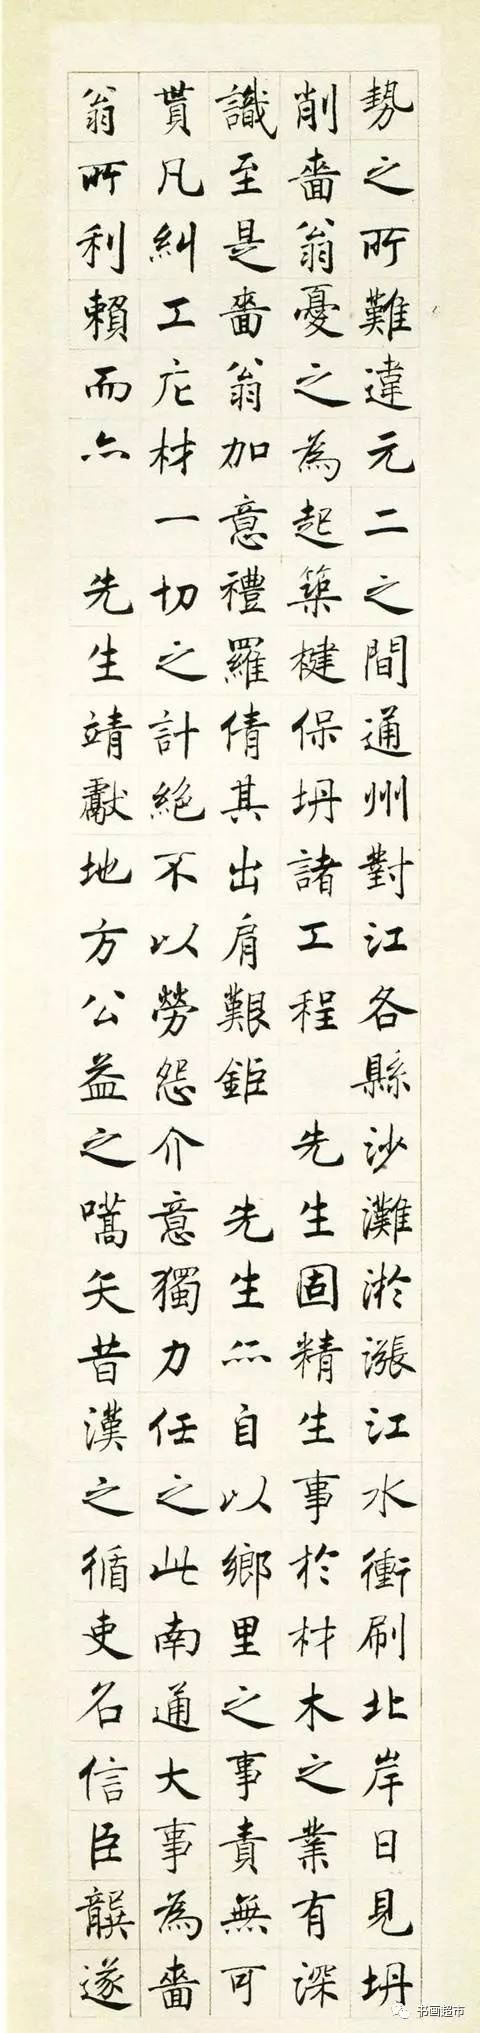 勢之所難違元二之間通州對江各縣沙灘淤漲江水衝刷北岸日見坍
削嗇翁憂之為起築楗保坍諸工程　先生固精生事於材木之業有深
識至是嗇翁加意禮羅倩其出肩艱鉅　先生亦自以鄉里之事責無可
貰凡糾工庀材一切之計絕不以勞怨介意獨力任之此南通大事為嗇
翁所利賴而亦　先生靖獻地方公益之嚆矢昔漢之循吏名信臣龔遂
书画超市